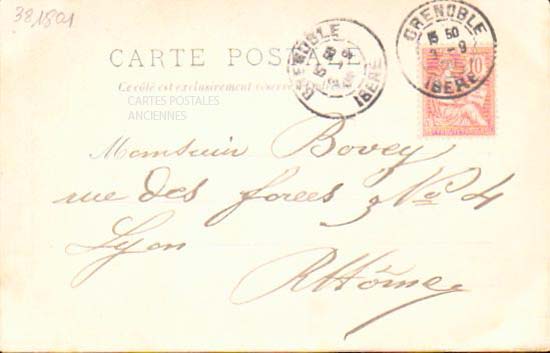 38,1801
CARTE POSTALE
Ce côté est exclusivement réservé
CARTES POSTALES
ANCIENNES
GRENOBLE
ISÈRE
GRENOBLE
15 50
ISÈRE
10
Monsieur Bovey
rue des forces No 4
Lyon
Rhône